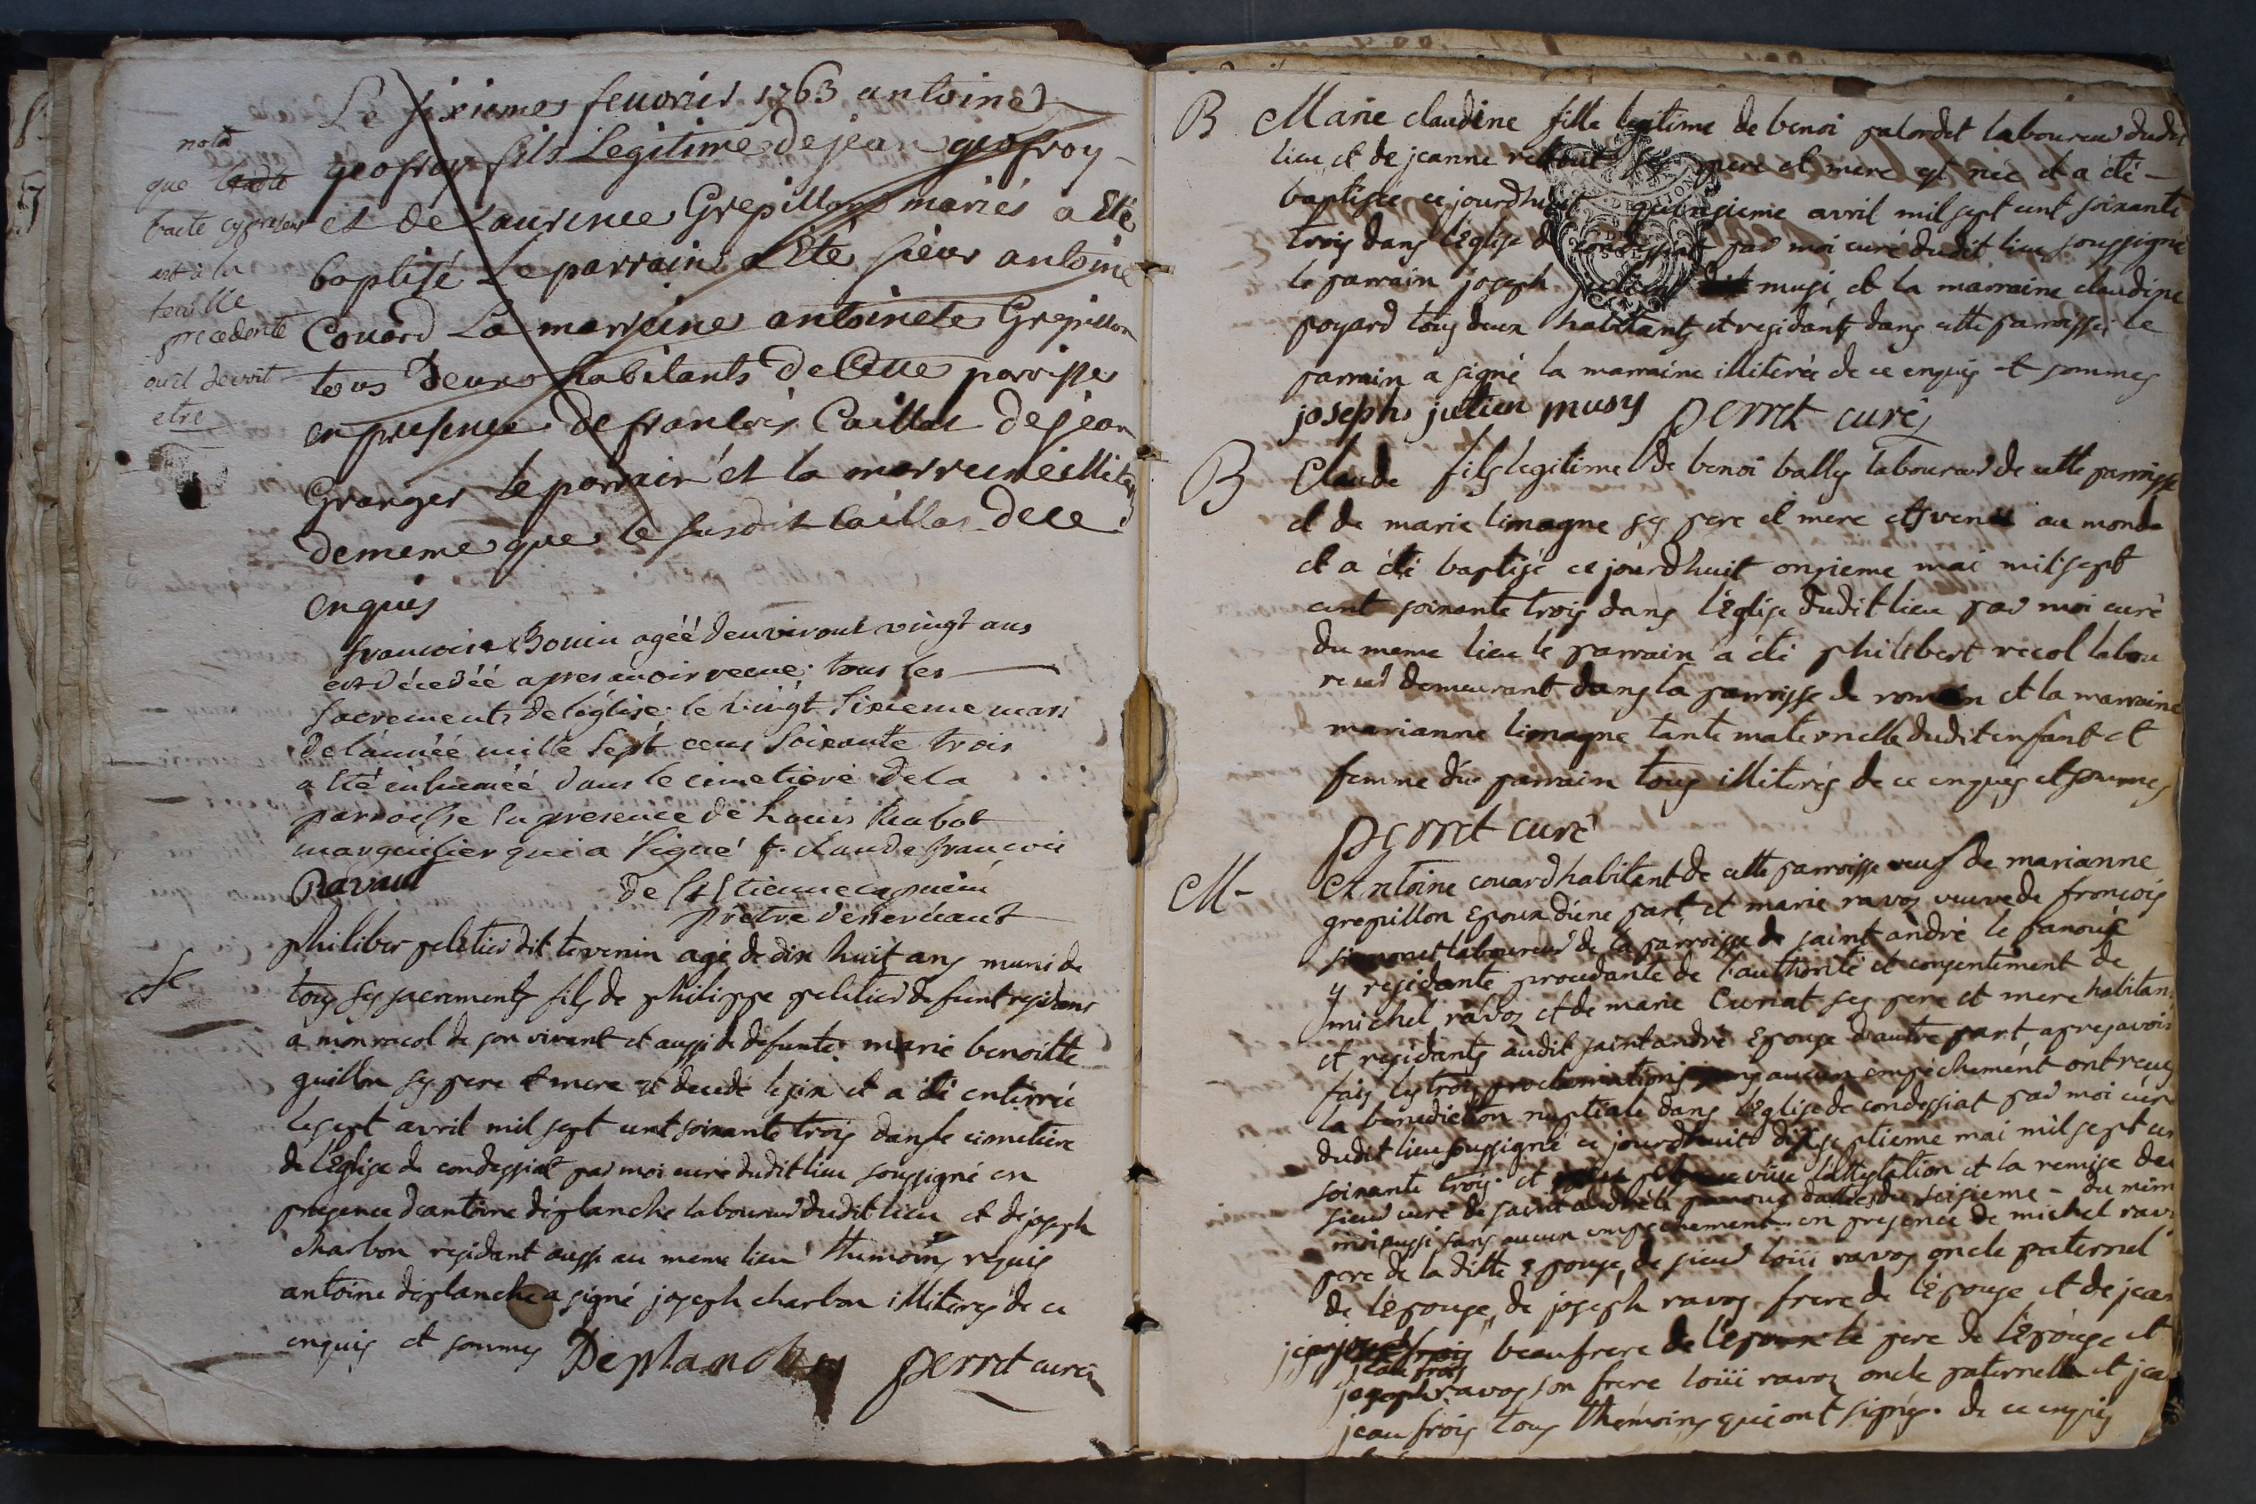 Le sixieme feuvrier 1763 antoine
geofroy fils Legitime de jean geofroy
et de Laurence Grepillon mariés a Eté
baptisé Le parrain a Eté sieur antoine
Couard La marreine antoinete Grepillon
tous Deux habitants De Cette paroisse
en presence de francois Caillat de jean
Granger le parrain et la marreine illiterés
de meme que le susdit Caillat de ce
enquis
nota
que
l'acte cy dessus
est à la
feuille
precedente
ou il devoit
etre
francoise Bouin agéé denviront vingt ans
est décedéé apres avoir recue tous les
sacrements de l'église le vingt sixieme mars
de lannéé mille sept cens soixante trois
a Eté inhuméé dans le cimetiere de la
parroisse en presence de Louis Rabot
marguilier qui a signé f. claude francois
Ravaut de St Etienne capucin
prêtre desservant
philiber peletier dit tevenin agé de dix huit ans muni de
tous ses sacrements fils de philippe peletier defunt residant
a monracol de son vivant et aussi de defunte marie benoitte
guillon ses pere et mere est decedé le six et a été enterré
le sept avril mil sept cent soixante trois dans le cimetiere
de l'Eglise de condessiat par moi curé dudit lieu soussigné en
presence d'antoine déplanche laboureur dudit lieu et de joseph
charbon residant aussi au meme lieu thémoins requis
antoine déplanche a signé joseph charbon illiteré de ce
enquis et sommés Deplanche perret curé
B Marie claudine fille legitime de benoi palordet laboureur dudit
lieu et de jeanne ses pere et mere est née et a été
baptisée ce jourdhuit quinsieme avril mil sept cent soixante
trois dans l'Eglise de condessiat par moi curé dudit lieu soussigné
le parrain joseph musi et la marraine claudine
poyard tous deux habitants et residants dans cette parroisse le
parrain a signé la marraine illiterée de ce enquis et sommés
joseph julien musy perret curé
B Claude fils legitime de benoi bally laboureur de cette parroisse
et de marie limagne ses pere et mere est venu au monde
et a été baptisé ce jourdhuit onsieme mai mil sept
cent soixante trois dans l'Eglise dudit lieu par moi curé
du meme lieu le parrain a été philibert recol labou
reur demeurant dans la parroisse de romans et la marraine
marianne limagne tante maternelle dudit enfant et
femme du parrain tous illiterés de ce enquis et sommés
perret curé
M- Antoine couard habitant de cette parroisse veuf de marianne
grepillon Epoux d'une part et marie ravoz veuve de francois
simonet laboureur de la parroisse de saint andré le panoux
y residante procedante de l'authorité et consentement de
michel ravoz et de marie Curiat ses pere et mere habitans
et residants audit saint andré Epouse d'autre part, apres avoir
fais les trois proclamations sans aucun empechement ont recus
la benediction nuptiale dans l'Eglise de condessiat par moi curé
dudit lieu soussigné ce jourdhuit dix septieme mai mil sept cent
soixante trois. et vüe l'attestation et la remise de
sieur curé de saint andré le panoux dattés du seisieme - du mem
moi aussi sans aucun empechement en presence de michel ravoz
pere de la ditte Epouse, de sieur loüi ravoz oncle paternel
de l'epouse, de joseph ravoz frere de l'Epouse et de jean
beaufrere de le pere de l'Epouse et
joseph ravoz son frere loüi ravoz oncle paternelle et jean
jean frois tous thémoins qui ont signés. de ce enquis